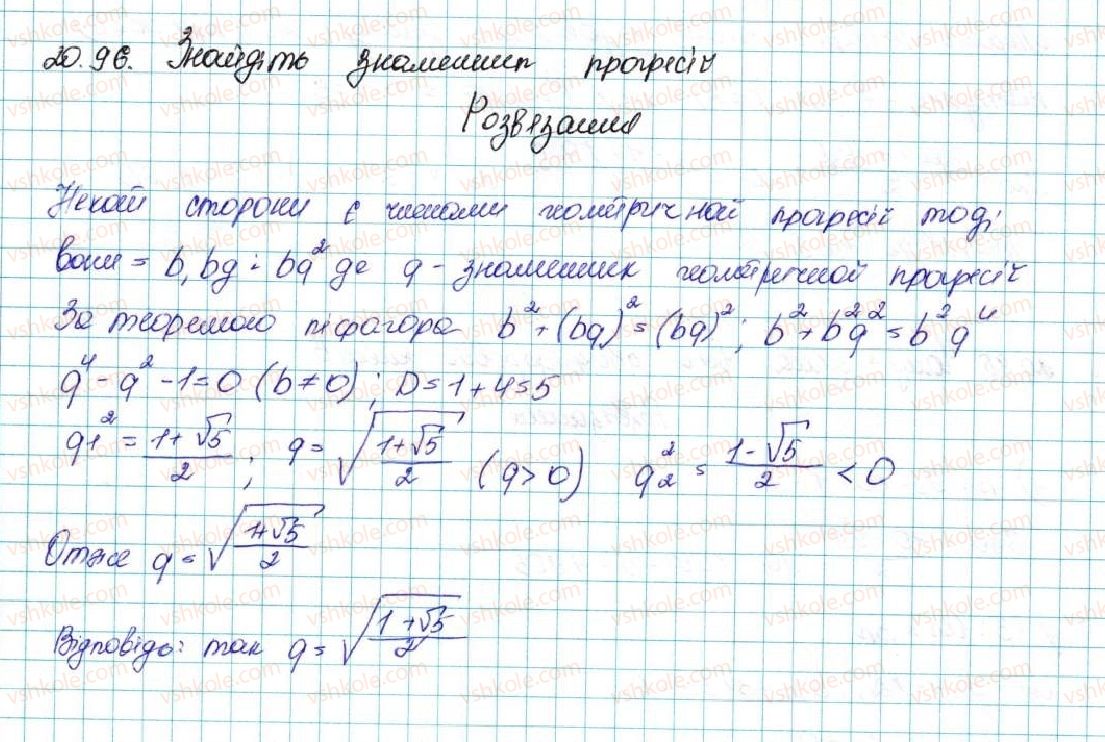 20.96. Знайдіть знаменник прогресії
Розв'язання
Нехай сторони є членами геометричной прогресій тоді
вони = b, bq і bq² де q - знаменник геометричной прогресії
За теоремою піфагора b² + (bq)² = (bq)²; b² + b²q² = b²q⁴
q⁴ - q² - 1 = 0 (b ≠ 0); D = 1 + 4 = 5
q1² = (1 + √5)/2; q = √((1 + √5)/2) (q > 0) q2² = (1 - √5)/2 < 0
Отже q = √((1 + √5)/2)
Відповідь: так q = √((1 + √5)/2)
vshkole.com